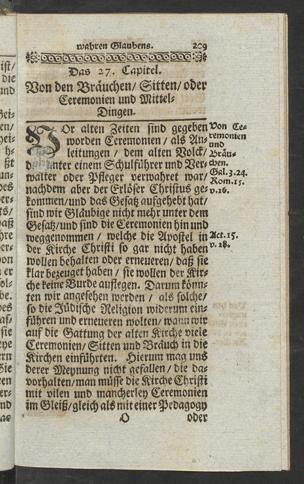 wahren Glaubens. 209
Das 27. Capitel.
Von den Bräuchen/ Sitten/ oder
Ceremonien und Mittel-
Dingen.
VOr alten Zeiten sind gegeben
worden Ceremonien/ als An-
leitungen/ dem alten Volck/
das unter einem Schulführer und Ver-
walter oder Pfleger verwahret war/
nachdem aber der Erlöser Christus ge-
kommen/ und das Gesatz auffgehebt hat/
sind wir Gläubige nicht mehr unter dem
Gesatz/ und sind die Ceremonien hin und
weggenommen/ welche die Apostel in
der Kirche Christi so gar nicht haben
wollen behalten oder erneueren/ daß sie
klar bezeuget haben/ sie wollen der Kir-
che keine Burde auflegen. Darum könn-
ten wir angesehen werden/ als solche/
so die Jüdische Religion widerum ein-
führen und erneueren wolten/ wann wir
auf die Gattung der alten Kirche viele
Ceremonien/ Sitten und Bräuch in die
Kirchen einführten. Hierum mag uns
derer Meynung nicht gefallen/ die da-
vorhalten/ man müsse die Kirche Christi
mit vilen und mancherley Ceremonien
im Gleiß/ gleich als mit einer Pedagogy
O oder
Von Ce-
remonien
und
Bräu-
chen.
Gal. 3. 24.
Rom. 15.
v. 16.
Act. 15.
v. 28.